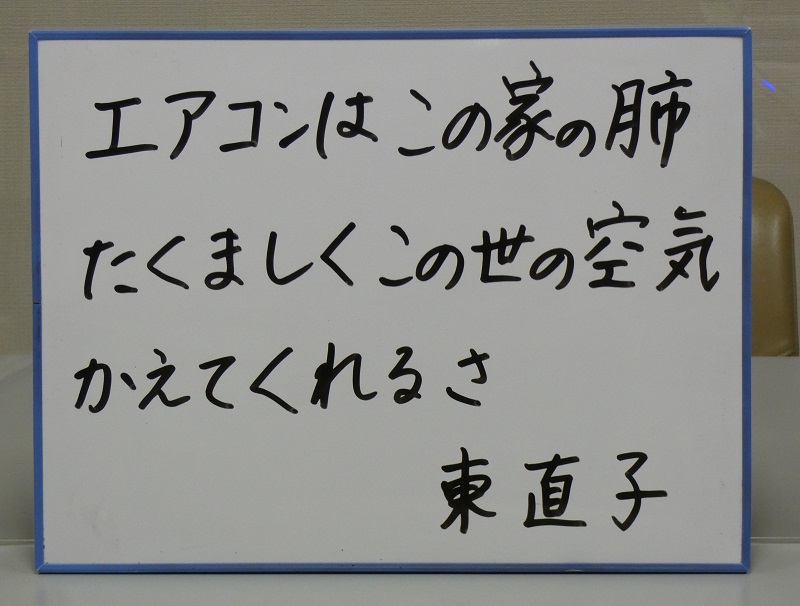 エアコンはこの家の肺
たくましくこの世の空気
かえてくれるさ
東直子